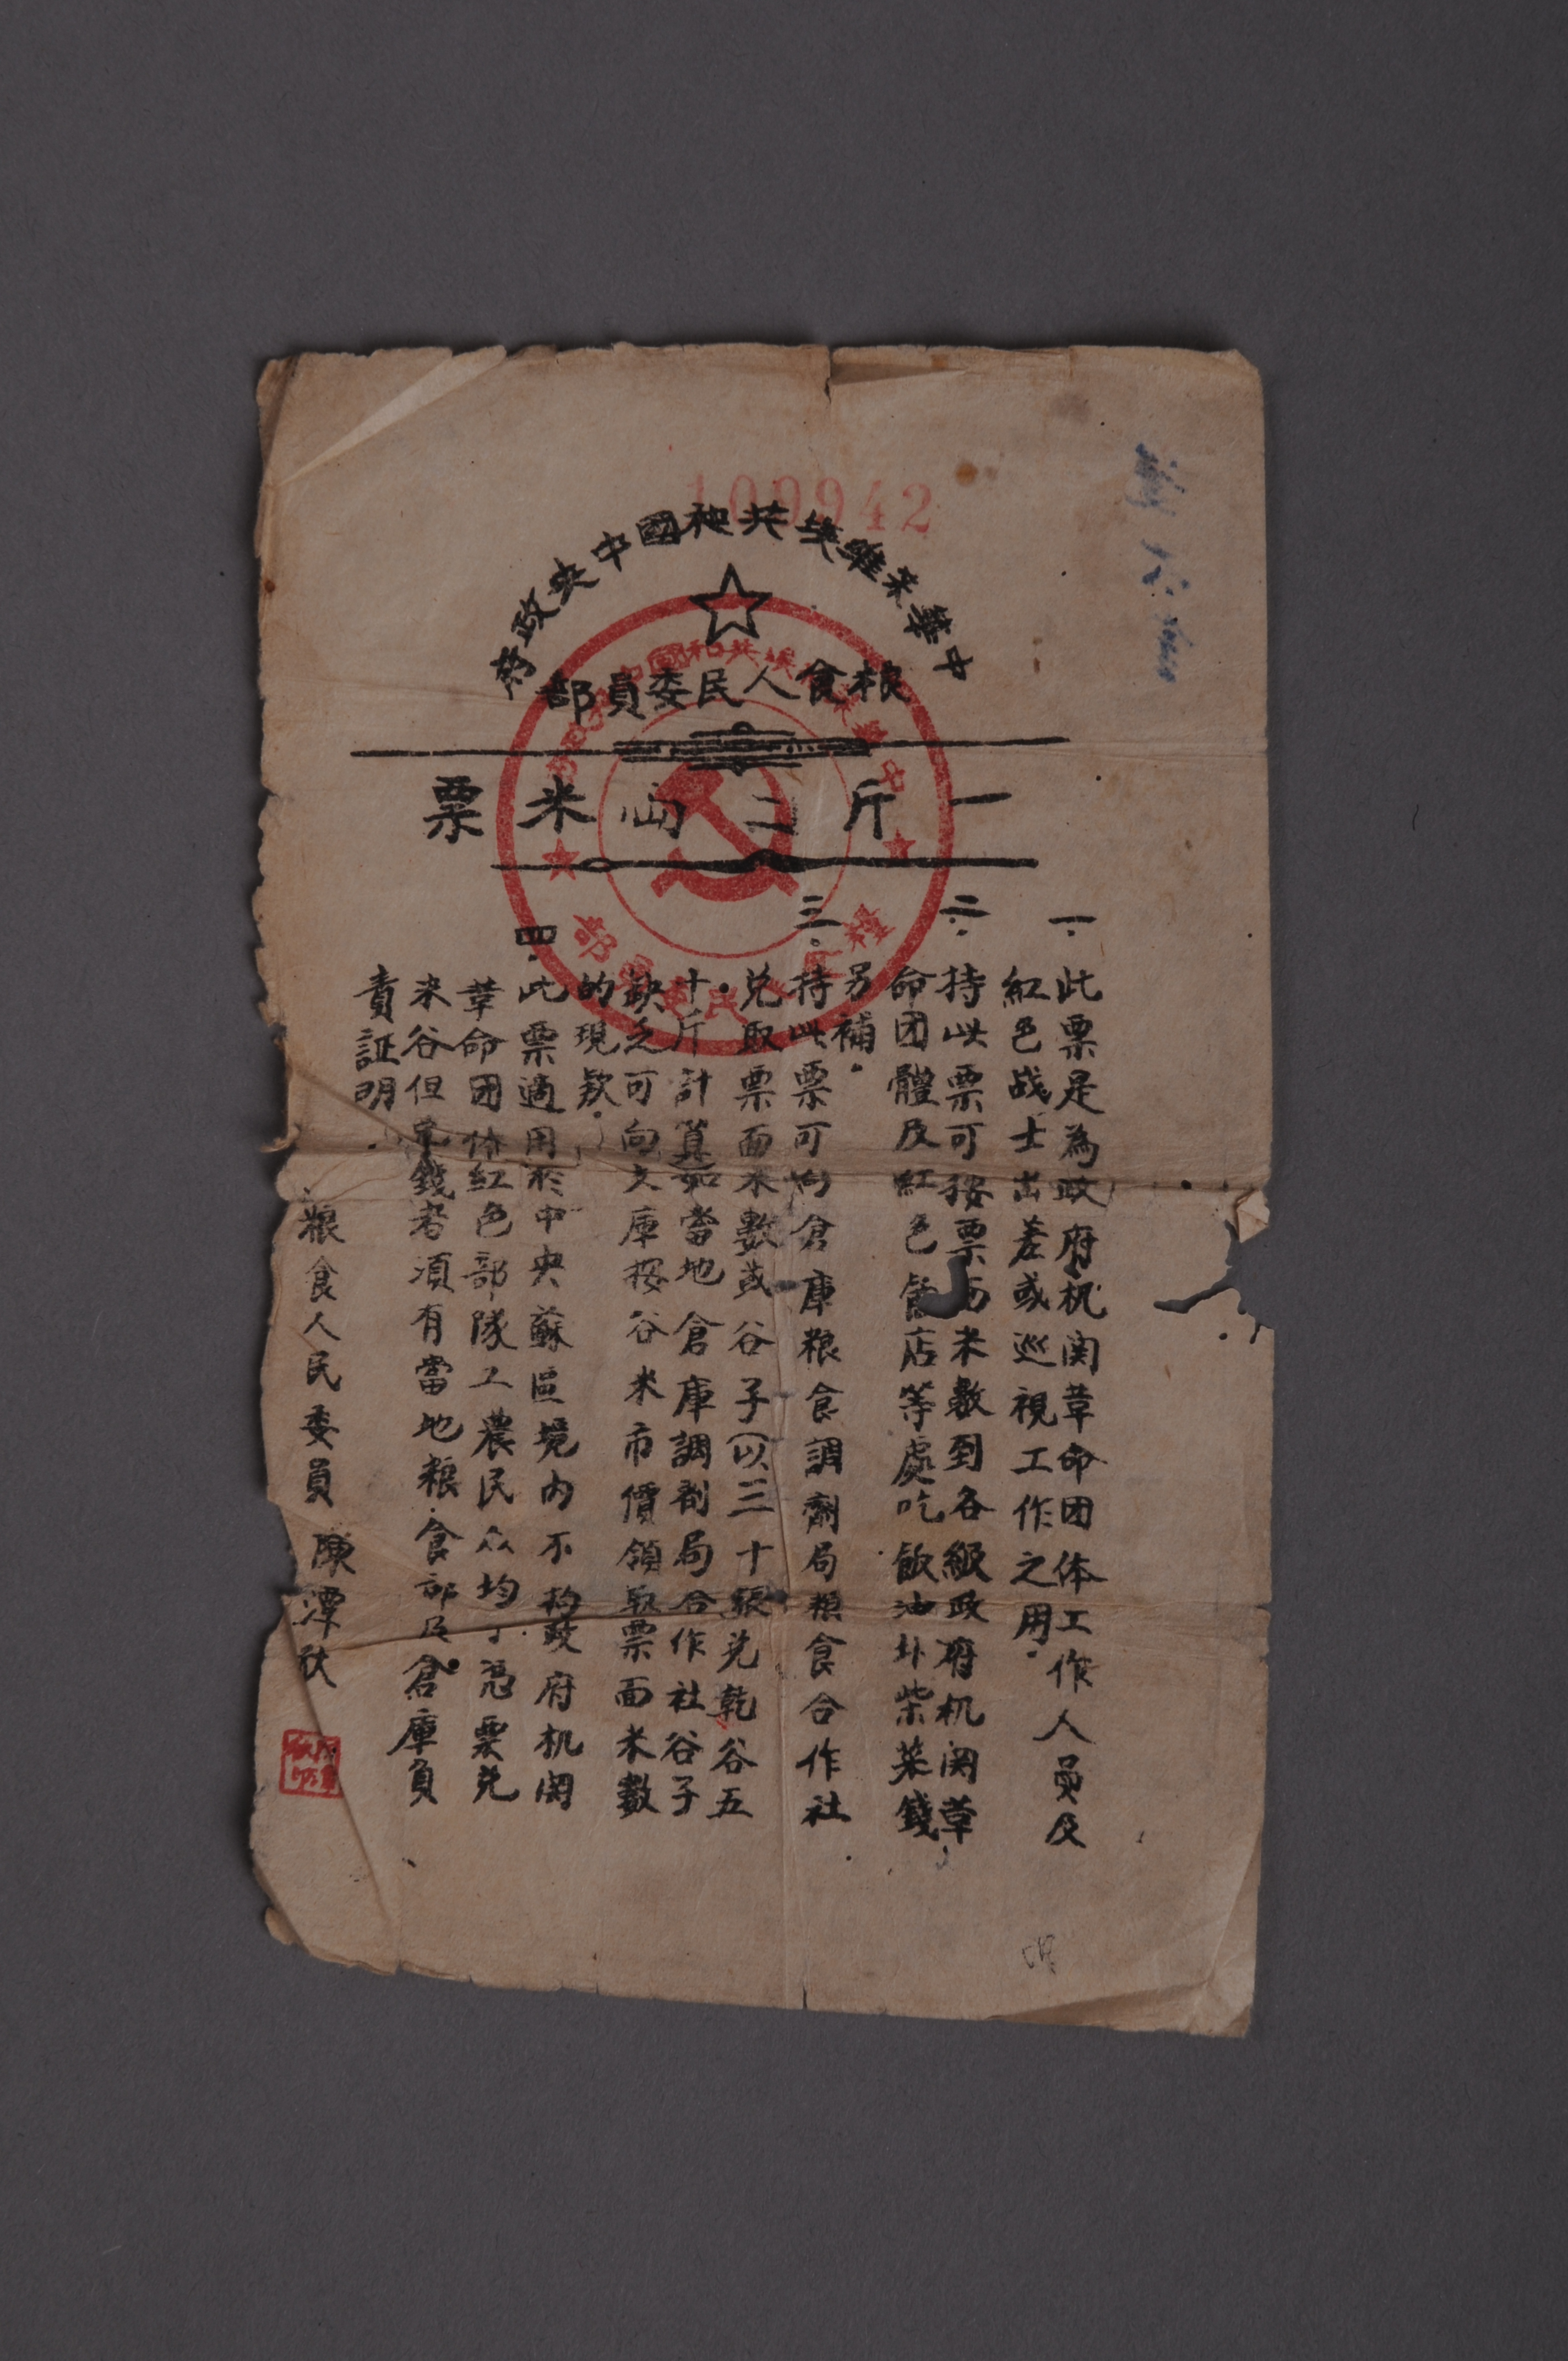 100942
中華蘇維埃共和國中央政府
粮食人民委員部
一斤二両米票
一.此票是為政府机関革命団体工作人員及
紅色战士出差或巡視工作之用.
二.持此票可按票面米數到各級政府机関革
命团體及紅色飯店等處吃飯油卟柴菜錢
另補.
三.持此票可向倉庫粮食調劑局粮食合作社
兑取票面米數或谷子(以三十張兑乾谷五
十斤計算)如當地倉庫調劑局合作社谷子
缺乏可向支庫按谷米市價領取票面米數
的現欵.
四.此票適用於中央蘇區境内不拘政府机関
革命团体紅色部隊工農民众均可憑票兑
米谷但兑錢者須有當地粮食部及倉庫負
責証明.
粮食人民委員 陳潭秋